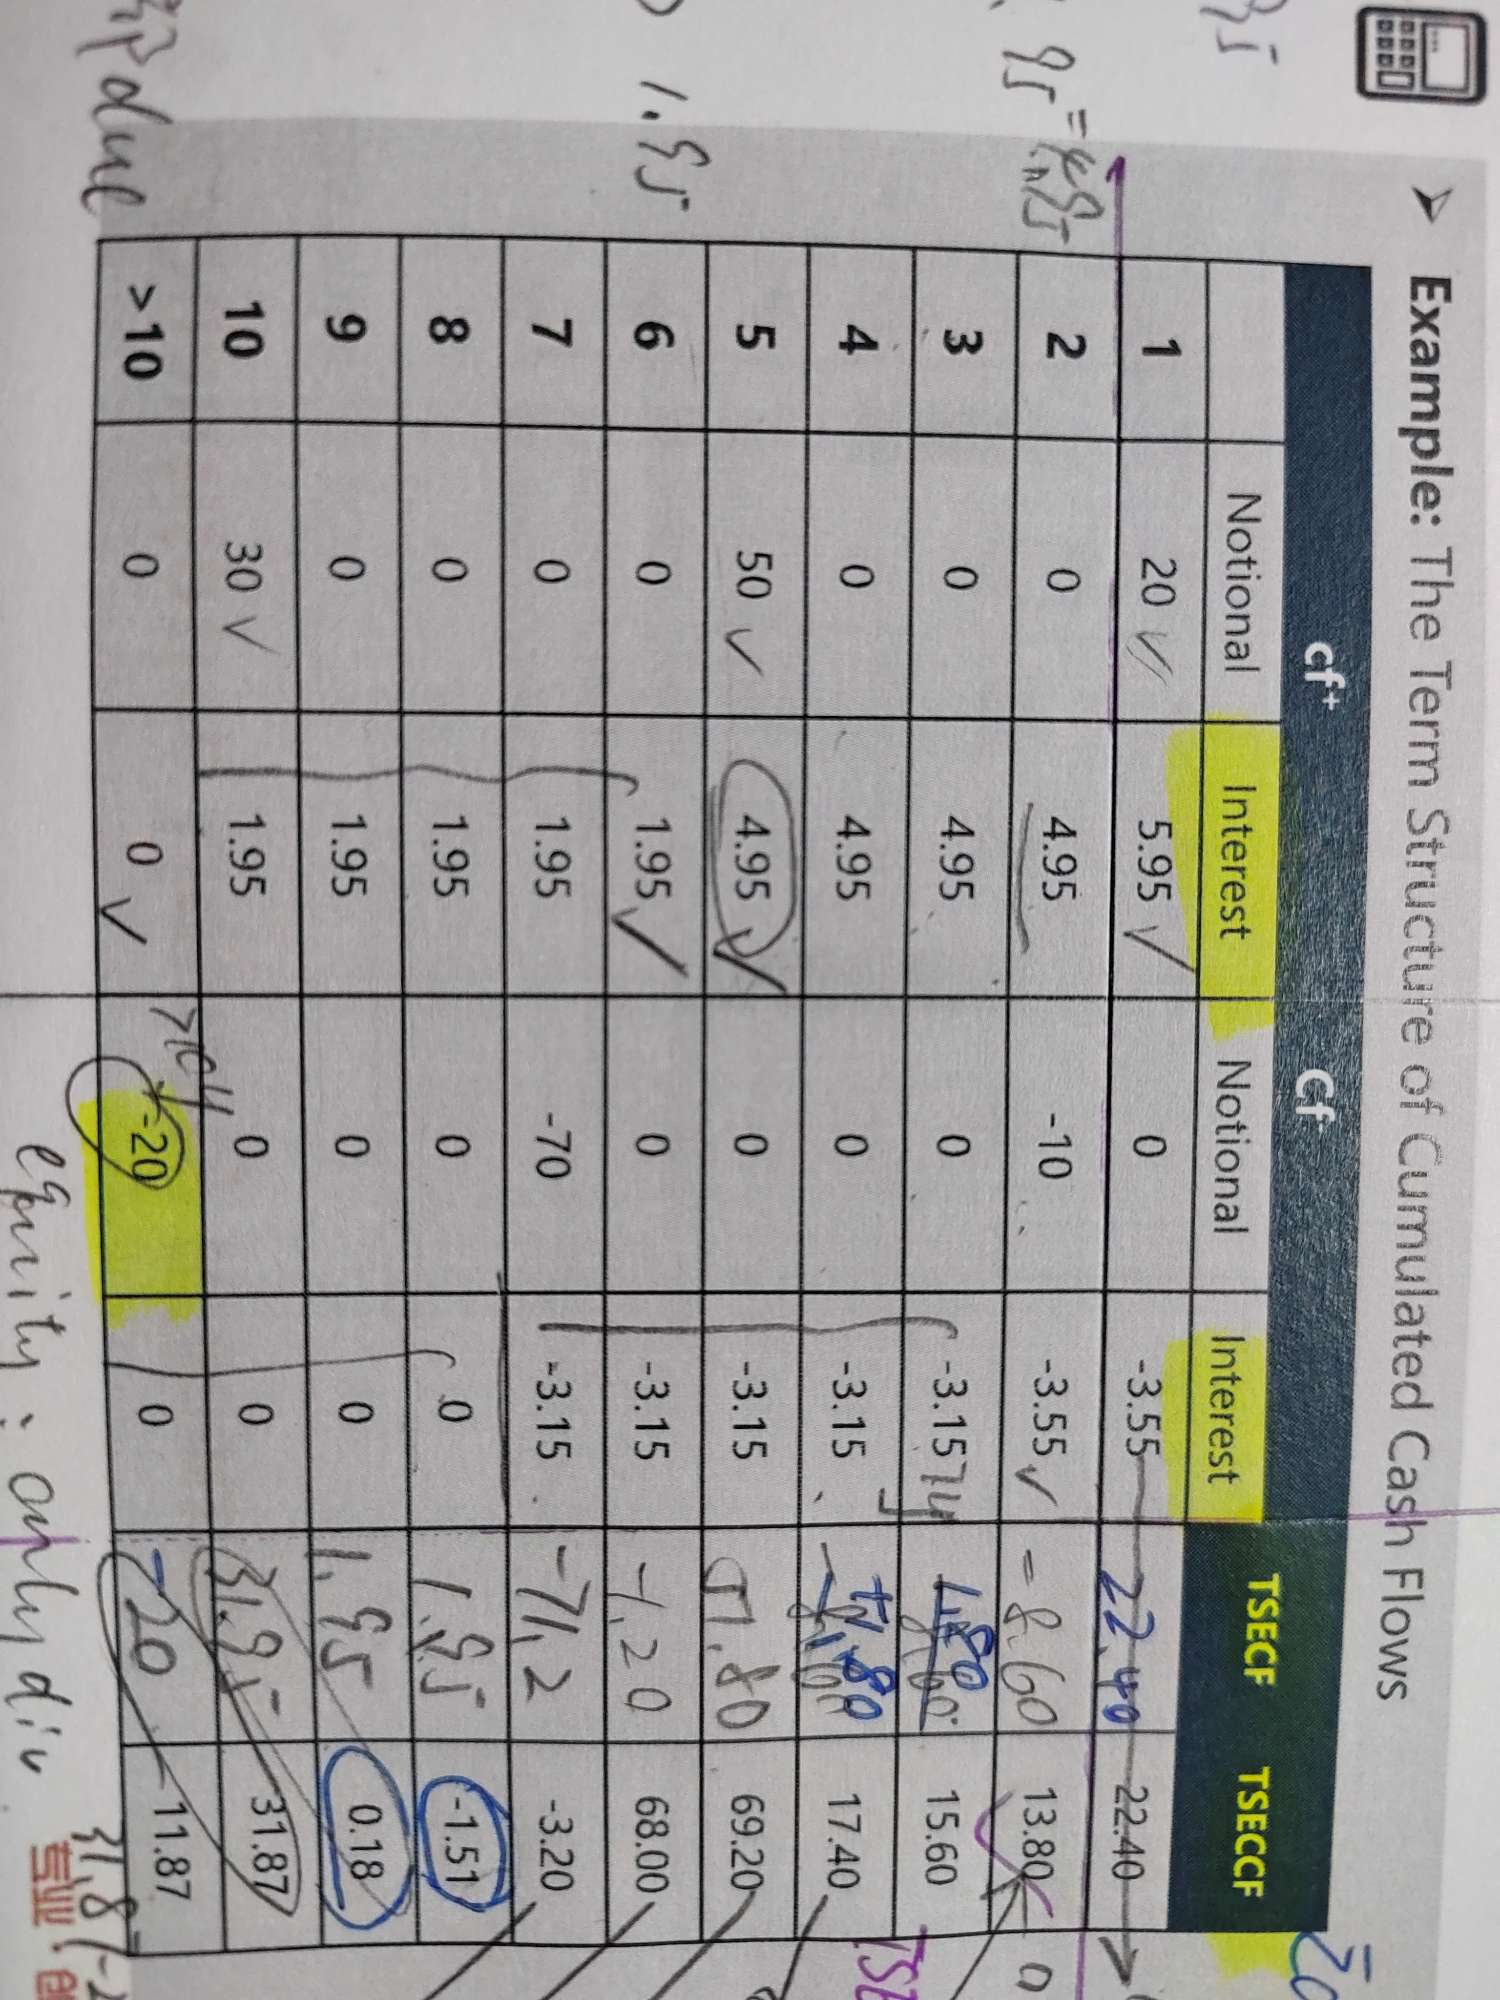 ➢ Example: The Term Structure of Cumulated Cash Flows
cf⁺ Cf⁻
Notional Interest Notional Interest TSECF TSECCF
1 20 5.95 0 -3.55 22.40 22.40
2 0 4.95 -10 -3.55 -8.60 13.80
3 0 4.95 0 -3.15 1.80 15.60
4 0 4.95 0 -3.15 +1.80 17.40
5 50 4.95 0 -3.15 51.80 69.20
6 0 1.95 0 -3.15 -1,20 68.00
7 0 1.95 -70 -3.15 -71,2 -3.20
8 0 1.95 0 0 1.95 -1.51
9 0 1.95 0 0 1.95 0.18
10 30 1.95 0 0 31.95 31.87
>10 0 0 -20 0 -20 11.87
1.95
due
equity: only div
31,8
专业